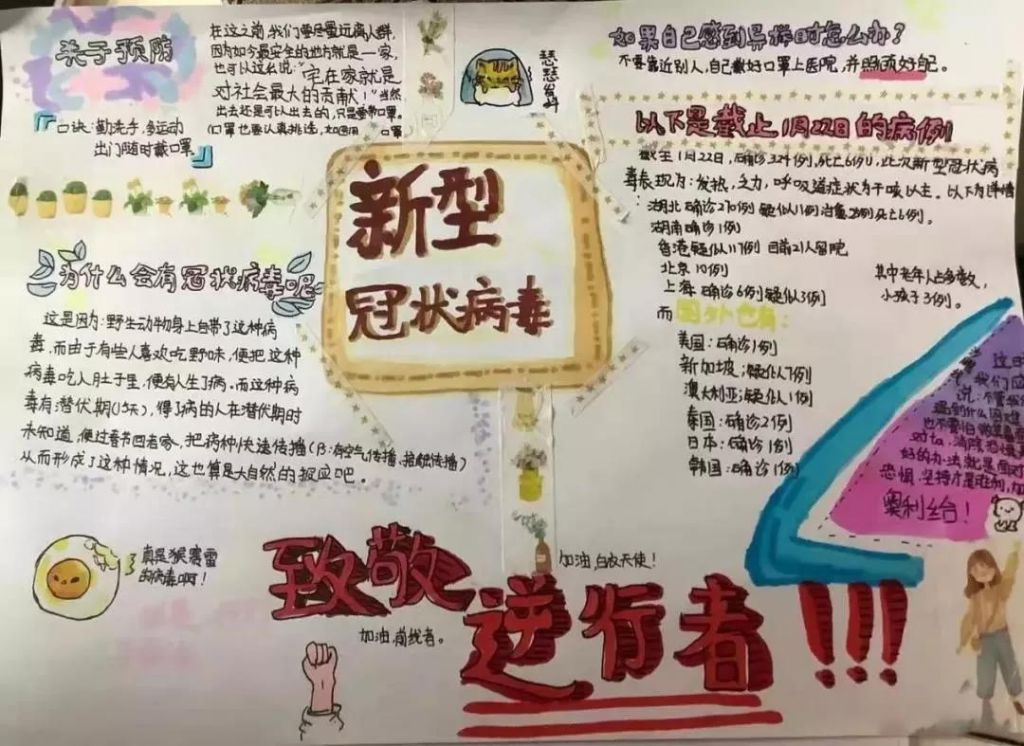 关于预防
在这之前,我们要尽量远离人群,
因为如今最安全的地方就是一家,
也可以这么说:"宅在家就是
对社会最大的贡献!"当然
出去还是可以出去的,只是要带口罩。
(口罩也要认真挑选,如 口罩
口诀:勤洗手,多运动
出门随时戴口罩
瑟瑟发抖
如果自己感到异样时怎么办?
不要靠近别人,自己戴好口罩上医院,并照顾好自己。
以下是截止1月22日的病例
截至1月22日,确诊324例,死亡6例,此次新型冠状病
毒表现为:发热,乏力,呼吸道症状为干咳以主。以下为详情
:湖北确诊270例 疑似11例 治愈 死亡6例。
湖南确诊1例
香港疑似117例 目前21人留院
北京10例
上海 确诊6例 疑似3例
其中老年人占多数,
小孩子3例。
而国外也有:
美国:确诊1例
新加坡:疑似7例
澳大利亚:疑似1例
泰国:确诊2例
日本:确诊1例
韩国:确诊1例
新型
冠状病毒
为什么会有冠状病毒呢
这是因为:野生动物身上自带了这种病
毒,而由于有些人喜欢吃野味,便把这种
病毒吃入肚子里,便有人生了病。而这种病
毒有潜伏期(15天),得了病的人在潜伏期时
未知道,便过春节回老家,把病种快速传播(B:有空气传播,接触传播)
从而形成了这种情况,这也算是大自然的报应吧。
这日
我们应
说:不要
遇到什么困难
也不要怕
对ta,消除恐惧
好的办法就是面对
恐惧,坚持才是胜利,加
奥利给!
真是猴赛雷
的病毒啊!
致敬
加油,白衣天使!
加油,前线者。
逆行者!!!